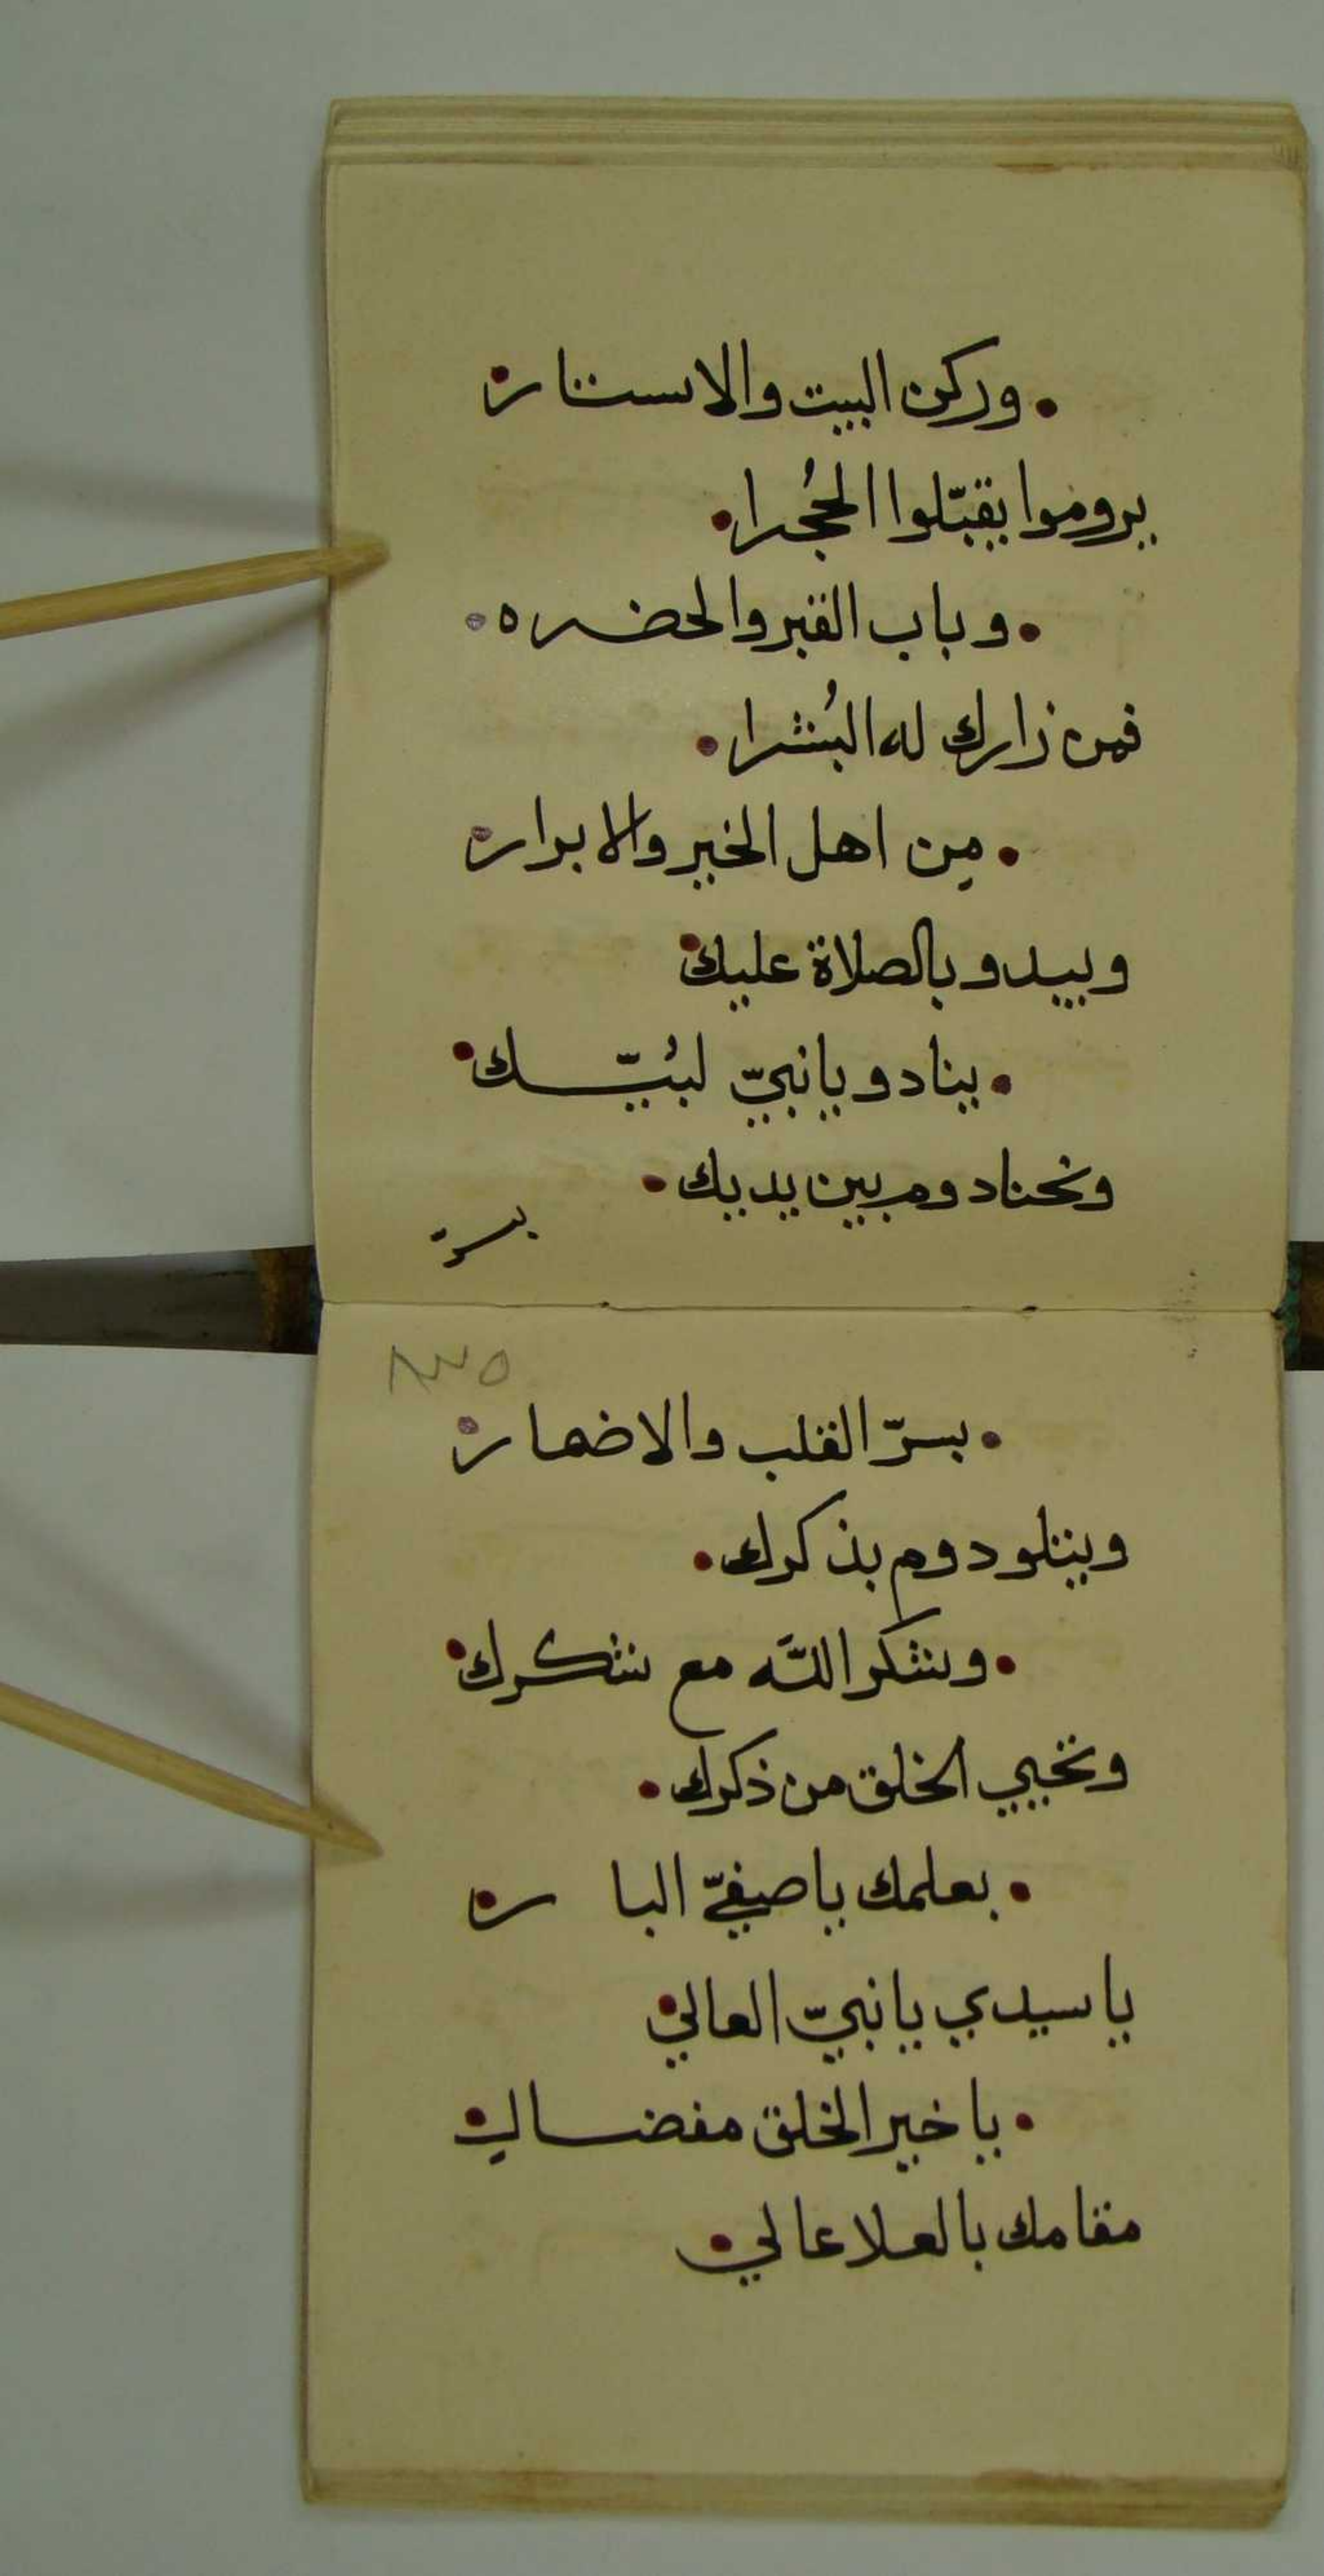 وركن البيت والاستار
يروموا يقبّلوا الحُجرا
وباب القبر والحضره
فمن زارك له البُشرا
مِن اهل الخير والابرار
ويبدو بالصلاة عليك
ينادو يا نبيّ لبُيّك
ونحنا دوم بين يديك
بسر
٨٣٥
بسرّ القلب والاضمار
ويتلو دوم بذكرك
ونشكر اللّه مع شكرك
وتحيي الخلق من ذكرك
بعلمك يا صفيّ البار
يا سيدي يا نبيّ العالي
يا خير الخلق مفضال
مقامك بالعلا عالي